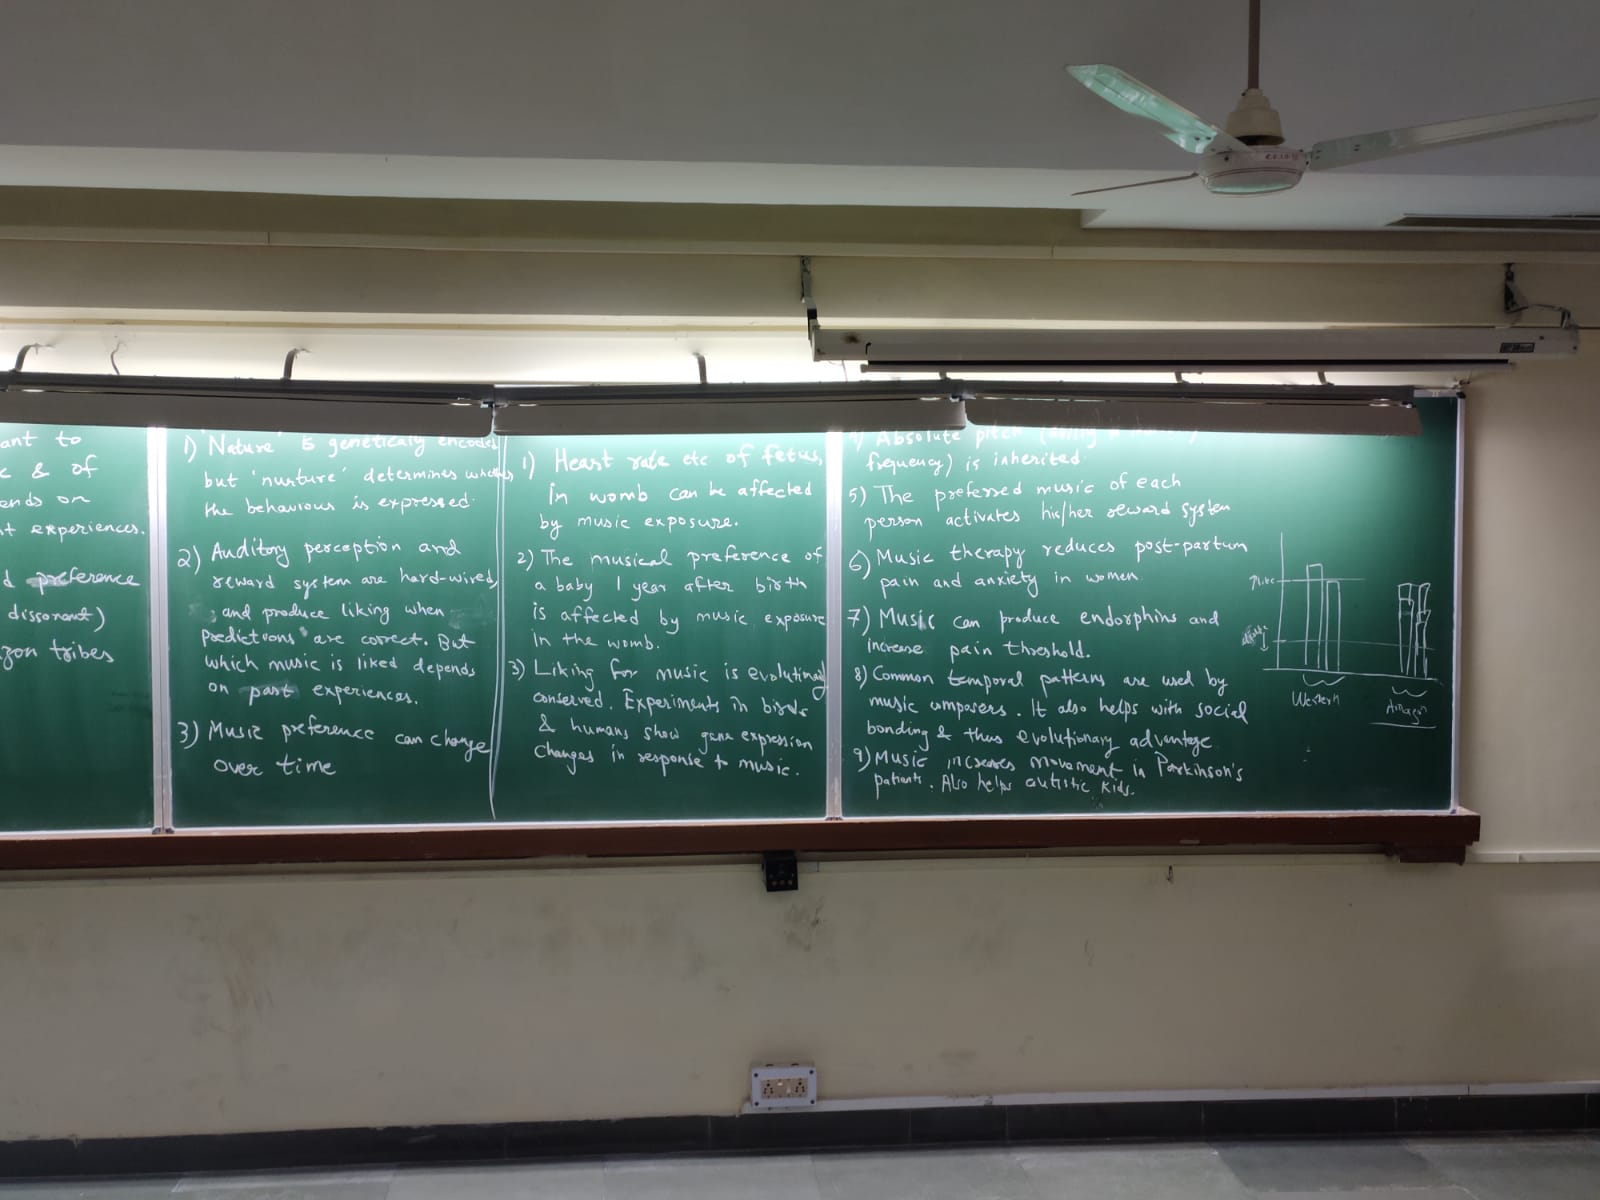 ant to
c & of
ends on
t experiences.
d preference
dissonant)
zon tribes
1) 'Nature' is geneticaly encoded
but 'nurture' determines whether
the behaviour is expressed.
2) Auditory perception and
reward system are hard-wired,
and produce liking when
predictions are correct. But
which music is liked depends
on past experiences.
3) Music preference can change
over time
1) Heart rate etc of fetus,
in womb can be affected
by music exposure.
2) The musical preference of
a baby 1 year after birth
is affected by music exposure
in the womb.
3) Liking for music is evolutionary
conserved. Experiments in birds
& humans show gene expression
changes in response to music.
4) Absolute pitch
frequency) is inherited
5) The preferred music of each
person activates his/her reward system
6) Music therapy reduces post-partum
pain and anxiety in women
7) Music can produce endorphins and
increase pain threshold.
8) Common temporal patterns are used by
music composers. It also helps with social
bonding & thus evolutionary advantage
9) Music increases movement in Parkinson's
patients. Also helps autistic kids.
like
Western
Amazon